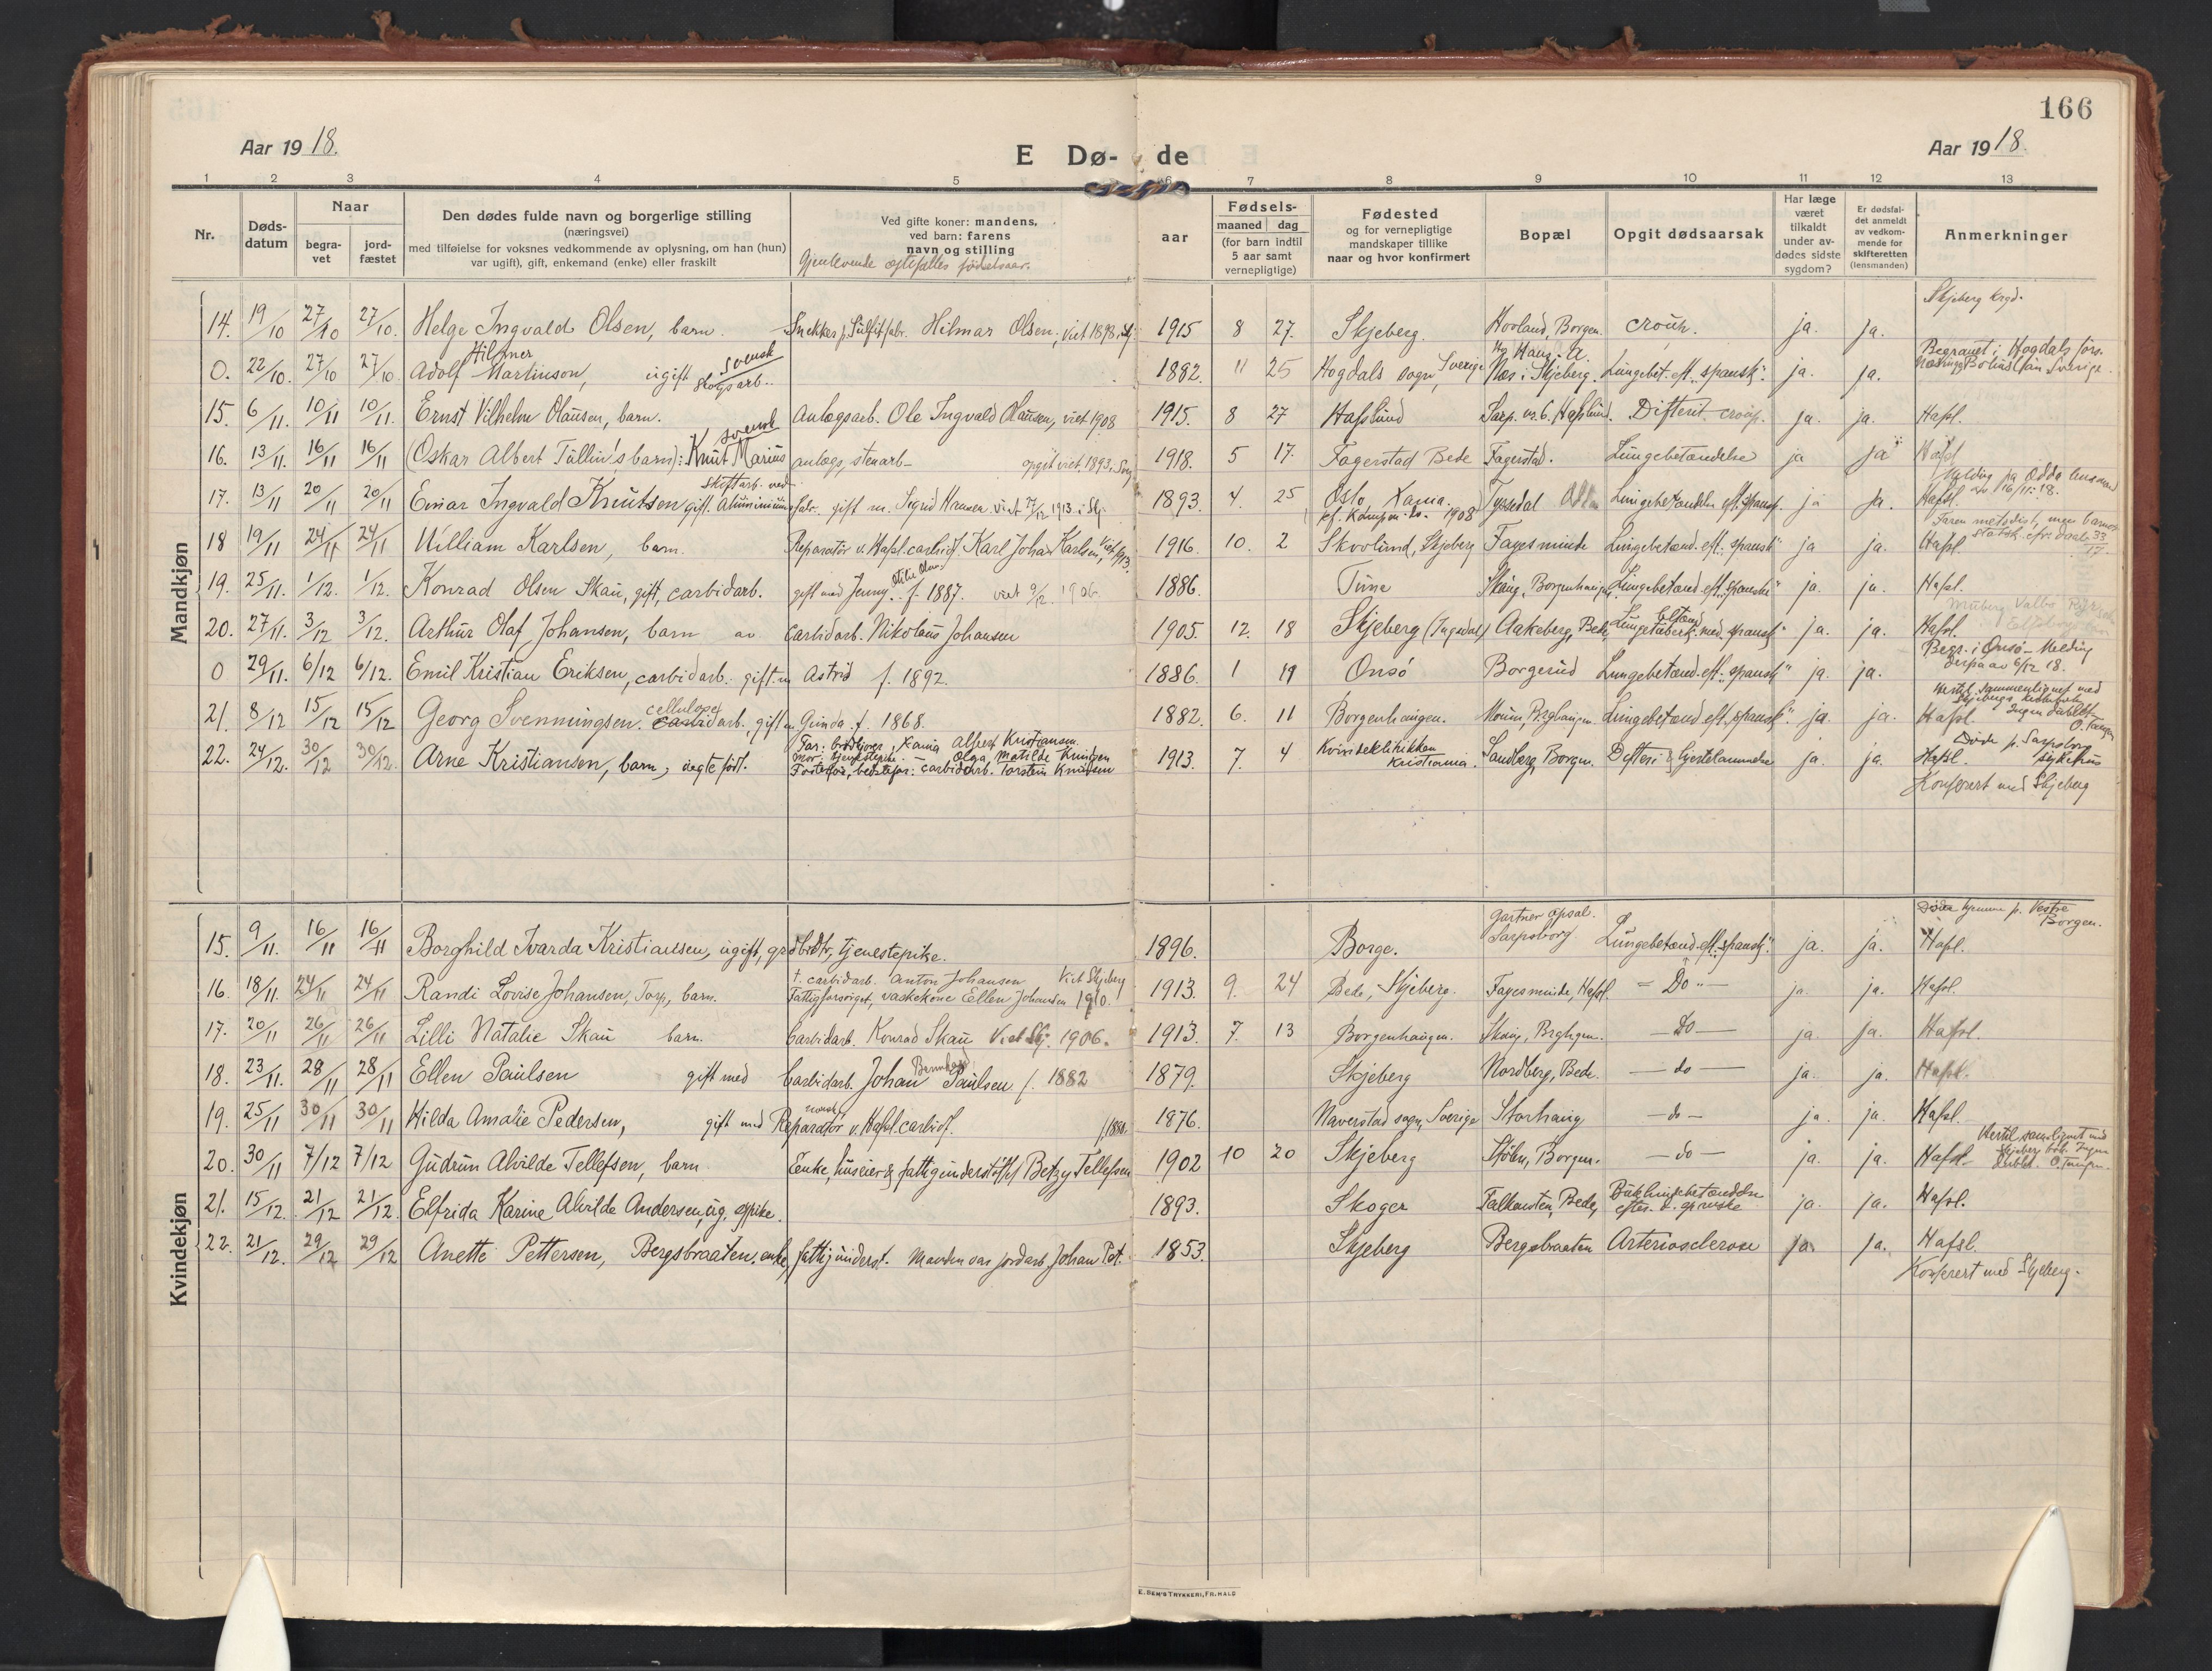 166
Aar 19 18.
E Dø- de
Aar 19 18.
1 2 3 4 5 6 7 8 9 10 11 12 13
Nr.
Døds-
datum
Naar
begra-
vet
jord-
fæstet
Den dødes fulde navn og borgerlige stilling
(næringsvei)
med tilføielse for voksnes vedkommende av oplysning, om han (hun)
var ugift), gift, enkemand (enke) eller fraskilt
Ved gifte koner: mandens,
ved barn: farens
navn og stilling
Gjenlevende egtefælles fødselsaar.
aar
Fødsels-
maaned dag
(for barn indtil
5 aar samt
vernepligtige)
Fødested
og for vernepligtige
mandskaper tillike
naar og hvor konfirmert
Bopæl
Opgit dødsaarsak
Har læge
været
tilkaldt
under av-
dødes sidste
sygdom?
Er dødsfal-
det anmeldt
av vedkom-
mende for
skifteretten
(lensmanden)
Anmerkninger
Mandkjøn
Skjeberg krgd.
14. 19/10 27/10 27/10. Helge Ingvald Olsen, barn. Snekker p. Sulfitfabr. Hilmar Olsen, viet 1898 i Skj. 1915 8 27. Skjeberg. Hovland, Borgen. croup. ja. ja.
Hilmer svensk Hg Haug. A. Begravet i Hogdals förs.
0. 22/10. 27/10 27/10 Adolf Martinson, ugift skogsarb.. 1882. 11 25 Hogdals sogn, Sverige Næs i Skjeberg. Lungebet. eft. "spansk". ja. ja. Bohuslän Sverige.
15. 6/11. 10/11 10/11. Ernst Vilhelm Olausen, barn. Anlægsarb. Ole Ingvald Olausen, viet 1908 1915. 8 27 Hafslund Sarp. vs. 6. Hafslund. Difterit-croup. ja. ja. Hafsl.
svensk
16. 13/11. 16/11 16/11 (Oskar Albert Tullin's barn): Knut Marius anlægs, stenarb- opgit viet 1893, Sverig 1918. 5 17. Fagerstad Bede Fagerstad. Lungebetændelse ja ja Hafsl
skiftarb. ved Melding fra Odda lensmand
17. 13/11 20/11 20/11 Einar Ingvald Knutsen gift. Aluminiums fabr. gift m. Sigrid Hansen viet 27/12 1913. i Skj. 1893. 4. 25 Oslo, Xania. Tyssedal Odda Lungebetændelse eft. spansk. ja ja. Hafsl. 16/11-18.
1908
Faren metodist, men barnet
18 19/11 24/11 24/11 William Karlsen, barn. Reparatør v. Hafsl. carbidf. Karl Johan Karlsen, Viet 1913. 1916. 10. 2 Skovlund, Skjeberg Fagesminde Lungebetænd. eft. "spansk" ja ja. Hafsl.
19. 25/11. 1/12. 1/12. Konrad Olsen Skau, gift, carbidarb. gift med Jenny f. 1887. viet 9/12. 1906 1886. Tune Skaug, Borgenhaugen Lungebetænd eft. "spanske" ja. ja. Hafsl.
20. 27/11. 3/12 3/12. Arthur Olaf Johansen, barn av Carbidarb. Nikolaus Johansen 1905. 12. 18 Skjeberg (Ingedal) Aakeberg, Bede Lungetuberk. med "spansk" ja. ja. Hafsl.
Begr. i Onsø - Melding
0 29/11. 6/12 6/12. Emil Kristian Eriksen, carbidarb. gift m Astrid f. 1892. 1886. 1 19 Onsø Borgerud Lungebetænd. eft. "spansk" ja. ja. derpaa av 6/12 18.
cellulose sammenlignet med
21. 8/12 15/12 15/12 Georg Svenningsen. carbidarb., gift m Gunda f. 1868. 1882. 6. 11 Borgenhaugen. Moum, Brghaugen. Lungebetænd eft. "spansk". ja. ja. Hafsl. Ingen dublett
Far: brødkjører, Xania Alfred Kristiansen
Mor: tjenestepike - Olga Matilde Knudsen Døde p. Sarpsborg
22. 24/12. 30/12 30/12. Arne Kristiansen, barn, uegte født. Fosterfar, bedstefar: carbidarb. Torstein Knudsen 1913. 7. 4 Kvindeklinikken Kristiania. Sandberg, Borgen. Difteri & hjertelammelse ja. ja. Hafsl. sykehus
Konferert med Skjeberg
Kvindekjøn
Gartner opsal. Døde hjemme p. Vestre Borgen.
15. 9/11. 16/11 16/11 Borghild Ivarda Kristiansen, ugift, grdbrdtr, tjenestepike. 1896. Borge. Sarpsborg Lungebetænd. eft. "spansk". ja. ja. Hafsl.
† carbidarb. Anton Johansen Viet Skjeberg
16. 18/11. 24/11 24/11 Randi Lovise Johansen, Torp, barn. Fattigforsørget, vaskekone Ellen Johansen 1910. 1913. 9. 24 Bede, Skjeberg. Fagesminde, Hafsl. = Do "- ja. ja. Hafsl.
17. 20/11 26/11 26/11 Lilli Natalie Skau barn. Carbidarb. Konrad Skau Viet Skj. 1906. 1913. 7. 13 Borgenhaugen. Skaug, Brghgen. - Do - ja. ja. Hafsl.
18. 23/11. 28/11 28/11 Ellen Paulsen gift med Carbidarb. Johan Bernhard Paulsen f. 1882 1879. Skjeberg Nordberg, Bede. - do - ja. ja. Hafsl.
norsk
19. 25/11 30/11 30/11 Hilda Amalie Pedersen, gift med Reparatør v. Hafsl. carbidf. 1876. Naverstad sogn, Sverige Storhaug - do - ja ja. Hafsl.
20. 30/11 7/12 7/12 Gudrun Alvilde Tellefsen, barn. Enke, huseier & fattigunderstøttet Betzy Tellefsen 1902 10 20 Skjeberg Stølen, Borgen. - do - ja. ja. Hafsl.
21. 15/12. 21/12 21/12. Elfrida Karine Alvilde Andersen, ug. pike. 1893. Skoger Falkensten, Bede, efter ja. ja. Hafsl.
22. 21/12. 29/12 29/12 Anette Pettersen, Bergsbraaten. enke, fattigunderst. Manden var jordarb. Johan Pet. 1853. Skjeberg Bergsbraaten Arteriosclerose ja. ja. Hafsl.
Konferert med Skjeberg.
E. SEM'S TRYKKERI, FR.HALD